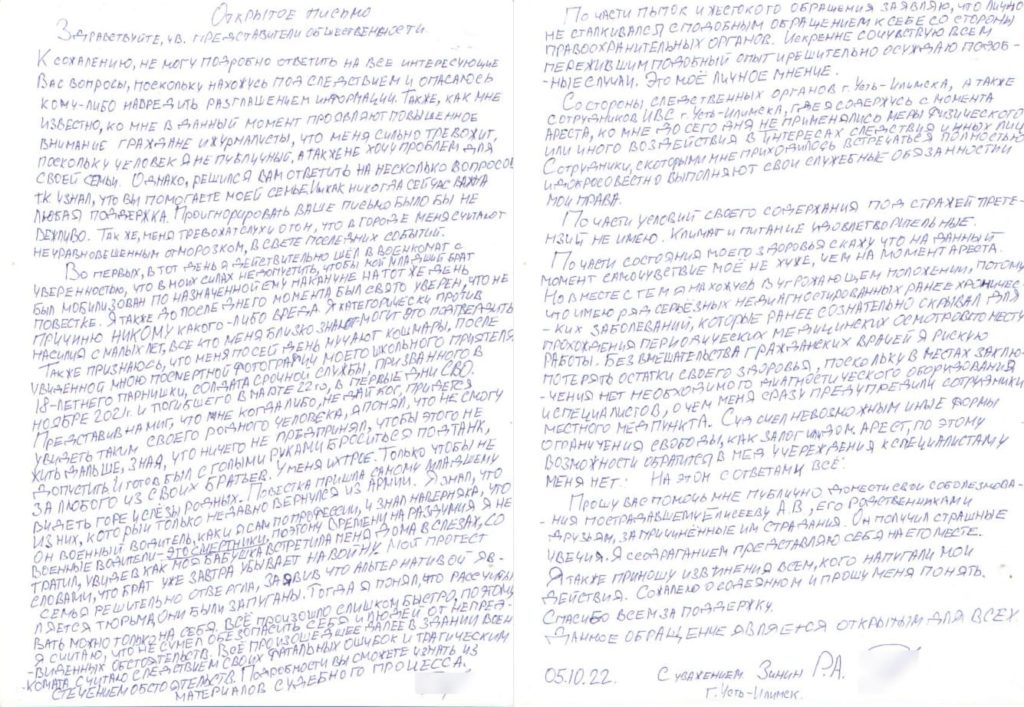 Открытое письмо
Здравствуйте, ув. представители общественности.
К сожалению, не могу подробно ответить на все интересующие
Вас вопросы, поскольку нахожусь под следствием и опасаюсь
кому-либо навредить разглашением информации. Также, как мне
известно, ко мне в данный момент проявляют повышенное
внимание граждане и журналисты, что меня сильно тревожит,
поскольку человек я не публичный, а также не хочу проблем для
своей семьи. Однако, решился вам ответить на несколько вопросов
тк узнал, что вы помогаете моей семье. И как никогда сейчас важна
любая поддержка. Проигнорировать ваше письмо было бы не
вежливо. Так же, меня тревожат слухи о том, что в городе меня считают
неуравновешенным отморозком, в свете последних событий.
Во первых, в тот день я действительно шёл в военкомат с
уверенностью, что в моих силах недопустить, чтобы мой младший брат
был мобилизован по назначенной ему накануне на тот же день
повестке. Я также до последнего момента был свято уверен, что не
причиню НИКОМУ какого-либо вреда. Я категорически против
насилия с малых лет, все кто меня близко знают могут это подтвердить
Также признаюсь, что меня по сей день мучают кошмары, после
увиденной мною посмертной фотографии моего школьного приятеля
18-летнего парнишки, солдата срочной службы, призванного в
ноябре 2021г. и погибшего в марте 22го, в первые дни СВО.
Представив на миг, что мне когда либо, не дай бог, придётся
увидеть таким своего родного человека, я понял, что не смогу
жить дальше, зная, что ничего не предпринял, чтобы этого не
допустить и готов был с голыми руками броситься под танк,
за любого из своих братьев. У меня их трое. Только чтобы не
видеть горе и слёзы родных. Повестка пришла самому младшему
из них, который только недавно вернулся из армии. Я знал, что
он военный водитель, как и я сам по профессии, и знал наверняка, что
военные водители - это смертники, поэтому времени на раздумия я не
тратил, увидев как моя бабушка встретила меня дома в слезах, со
словами, что брат уже завтра убывает на войну. Мой протест
семья решительно отвергла, заявив что альтернативой яв-
ляется тюрьма, они были запуганы. Тогда я понял, что рассчиты-
вать можно только на себя. Всё произошло слишком быстро, поэтому
я считаю, что не сумел обезопасить себя и людей от непред-
-виденных обстоятельств. Всё произошедшее далее в здании воен
-комата считаю следствием своих фатальных ошибок и трагическим
стечением обстоятельств. Подробности вы сможете узнать из
материалов судебного процесса.
По части пыток и жестокого обращения заявляю, что лично
не сталкивался с подобным обращением к себе со стороны
правоохранительных органов. Искренне сочувствую всем
пережившим подобный опыт и решительно осуждаю подоб-
-ные случаи. Это моё личное мнение.
Со стороны следственных органов г. Усть-Илимска, а также
сотрудников ИВС г. Усть-Илимска, где я содержусь с момента
ареста, ко мне до сего дня не применялись меры физического
или иного воздействия в интересах следствия и иных лиц
Сотрудники, с которыми мне приходилось встречаться полностью
и добросовестно выполняют свои служебные обязанности
мои права.
По части условий своего содержания под стражей прете-
нзий не имею. Климат и питание удовлетворительные.
По части состояния моего здоровья скажу что на данный
момент самочувствие моё не хуже, чем на момент ареста.
Но вместе с тем я нахожусь в угрожающем положении, потому
что имею ряд серьёзных недиагностированных ранее хроничес-
-ких заболеваний, которые ранее сознательно скрывал для
прохождения периодических медицинских осмотров по месту
работы. Без вмешательства гражданских врачей я рискую
потерять остатки своего здоровья, поскольку в местах заклю-
-чения нет необходимого диагностического оборудования
и специалистов, о чем меня сразу предупредили сотрудники
местного медпункта. Суд счел невозможным иные формы
ограничения свободы, как залог или дом арест, по этому
возможности обратится в мед учереждения к специалистам у
меня нет. На этом с ответами всё.
Прошу вас помочь мне публично донести свои соболезнова-
-ния пострадавшему Елисееву А.В, его родственникам и
друзьям, за причинённые им страдания. Он получил страшные
увечия. Я с содраганием представляю себя на его месте.
Я также приношу извинения всем, кого напугали мои
действия. Сожалею о содеянном и прошу меня понять.
Спасибо всем за поддержку.
Данное обращение является открытым для всех
05.10.22. С уважением Зинин Р.А.
г. Усть-Илимск.